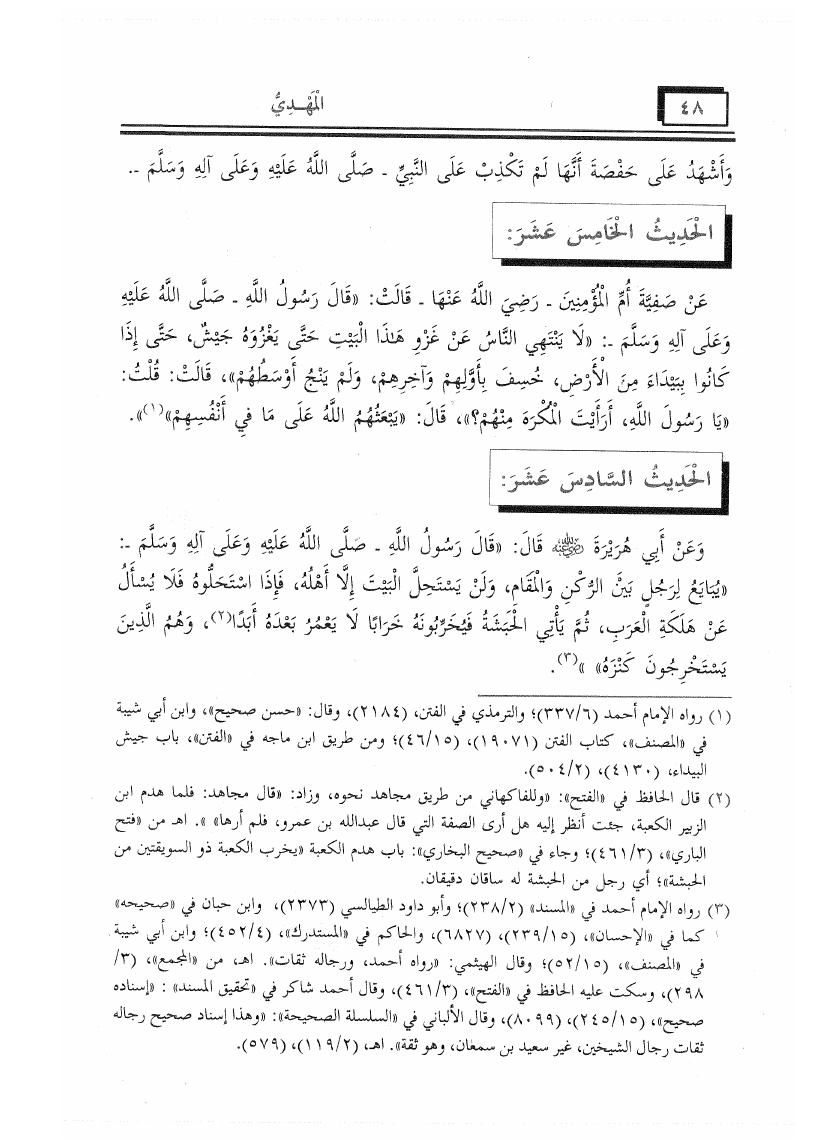 ٤٨
الْمَهْدِيُّ
وَأَشْهَدُ عَلَى حَفْصَةَ أَنَّهَا لَمْ تَكْذِبْ عَلَى النَّبِيِّ ـ صَلَّى اللَّهُ عَلَيْهِ وَعَلَى آلِهِ وَسَلَّمَ ـ.
الْحَدِيثُ الْخَامِسَ عَشَرَ:
عَنْ صَفِيَّةَ أُمِّ الْمُؤْمِنِينَ ـ رَضِيَ اللَّهُ عَنْهَا ـ قَالَتْ: «قَالَ رَسُولُ اللَّهِ ـ صَلَّى اللَّهُ عَلَيْهِ
وَعَلَى آلِهِ وَسَلَّمَ ـ: «لَا يَنْتَهِي النَّاسُ عَنْ غَزْوِ هَـٰذَا الْبَيْتِ حَتَّى يَغْزُوَهُ جَيْشٌ، حَتَّى إِذَا
كَانُوا بِبَيْدَاءَ مِنَ الْأَرْضِ، خُسِفَ بِأَوَّلِهِمْ وَآخِرِهِمْ، وَلَمْ يَنْجُ أَوْسَطُهُمْ»، قَالَتْ: قُلْتُ:
«يَا رَسُولَ اللَّهِ، أَرَأَيْتَ الْمُكْرَهَ مِنْهُمْ؟»، قَالَ: «يَبْعَثُهُمُ اللَّهُ عَلَى مَا فِي أَنْفُسِهِمْ»(١)».
الْحَدِيثُ السَّادِسَ عَشَرَ:
وَعَنْ أَبِي هُرَيْرَةَ ﷺ قَالَ: «قَالَ رَسُولُ اللَّهِ ـ صَلَّى اللَّهُ عَلَيْهِ وَعَلَى آلِهِ وَسَلَّمَ ـ:
«يُبَايَعُ لِرَجُلٍ بَيْنَ الرُّكْنِ وَالْمَقَامِ، وَلَنْ يَسْتَحِلَّ الْبَيْتَ إِلَّا أَهْلُهُ، فَإِذَا اسْتَحَلُّوهُ فَلَا يُسْأَلُ
عَنْ هَلَكَةِ الْعَرَبِ، ثُمَّ يَأْتِي الْحَبَشَةُ فَيُخَرِّبُونَهُ خَرَابًا لَا يَعْمُرُ بَعْدَهُ أَبَدًا(٢)، وَهُمُ الَّذِينَ
يَسْتَخْرِجُونَ كَنْزَهُ» »(٣).
(١) رواه الإمام أحمد (٣٣٧/٦)؛ والترمذي في الفتن، (٢١٨٤)، وقال: «حسن صحيح»، وابن أبي شيبة
في «المصنف»، كتاب الفتن (١٩٠٧١)، (٤٦/١٥)؛ ومن طريق ابن ماجه في «الفتن»، باب جيش
البيداء، (٤١٣٠)، (٥٠٤/٢).
(٢) قال الحافظ في «الفتح»: «وللفاكهاني من طريق مجاهد نحوه، وزاد: «قال مجاهد: فلما هدم ابن
الزبير الكعبة، جئت أنظر إليه هل أرى الصفة التي قال عبدالله بن عمرو، فلم أرها» ». اهـ من «فتح
الباري»، (٤٦١/٣)؛ وجاء في «صحيح البخاري»: باب هدم الكعبة «يخرب الكعبة ذو السويقتين من
الحبشة»؛ أي رجل من الحبشة له ساقان دقيقان.
(٣) رواه الإمام أحمد في «المسند» (٢٣٨/٢)؛ وأبو داود الطيالسي (٢٣٧٣)، وابن حبان في «صحيحه»
كما في «الإحسان»، (٢٣٩/١٥)، (٦٨٢٧)، والحاكم في «المستدرك»، (٤٥٢/٤)؛ وابن أبي شيبة
في «المصنف»، (٥٢/١٥)؛ وقال الهيثمي: «رواه أحمد، ورجاله ثقات». اهـ، من «المجمع»، (٣/
٢٩٨)، وسكت عليه الحافظ في «الفتح»، (٤٦١/٣)، وقال أحمد شاكر في «تحقيق المسند» : «إسناده
صحيح»، (٢٤٥/١٥)، (٨٠٩٩)، وقال الألباني في «السلسلة الصحيحة»: «وهذا إسناد صحيح رجاله
ثقات رجال الشيخين، غير سعيد بن سمعان، وهو ثقة». اهـ، (١١٩/٢)، (٥٧٩).